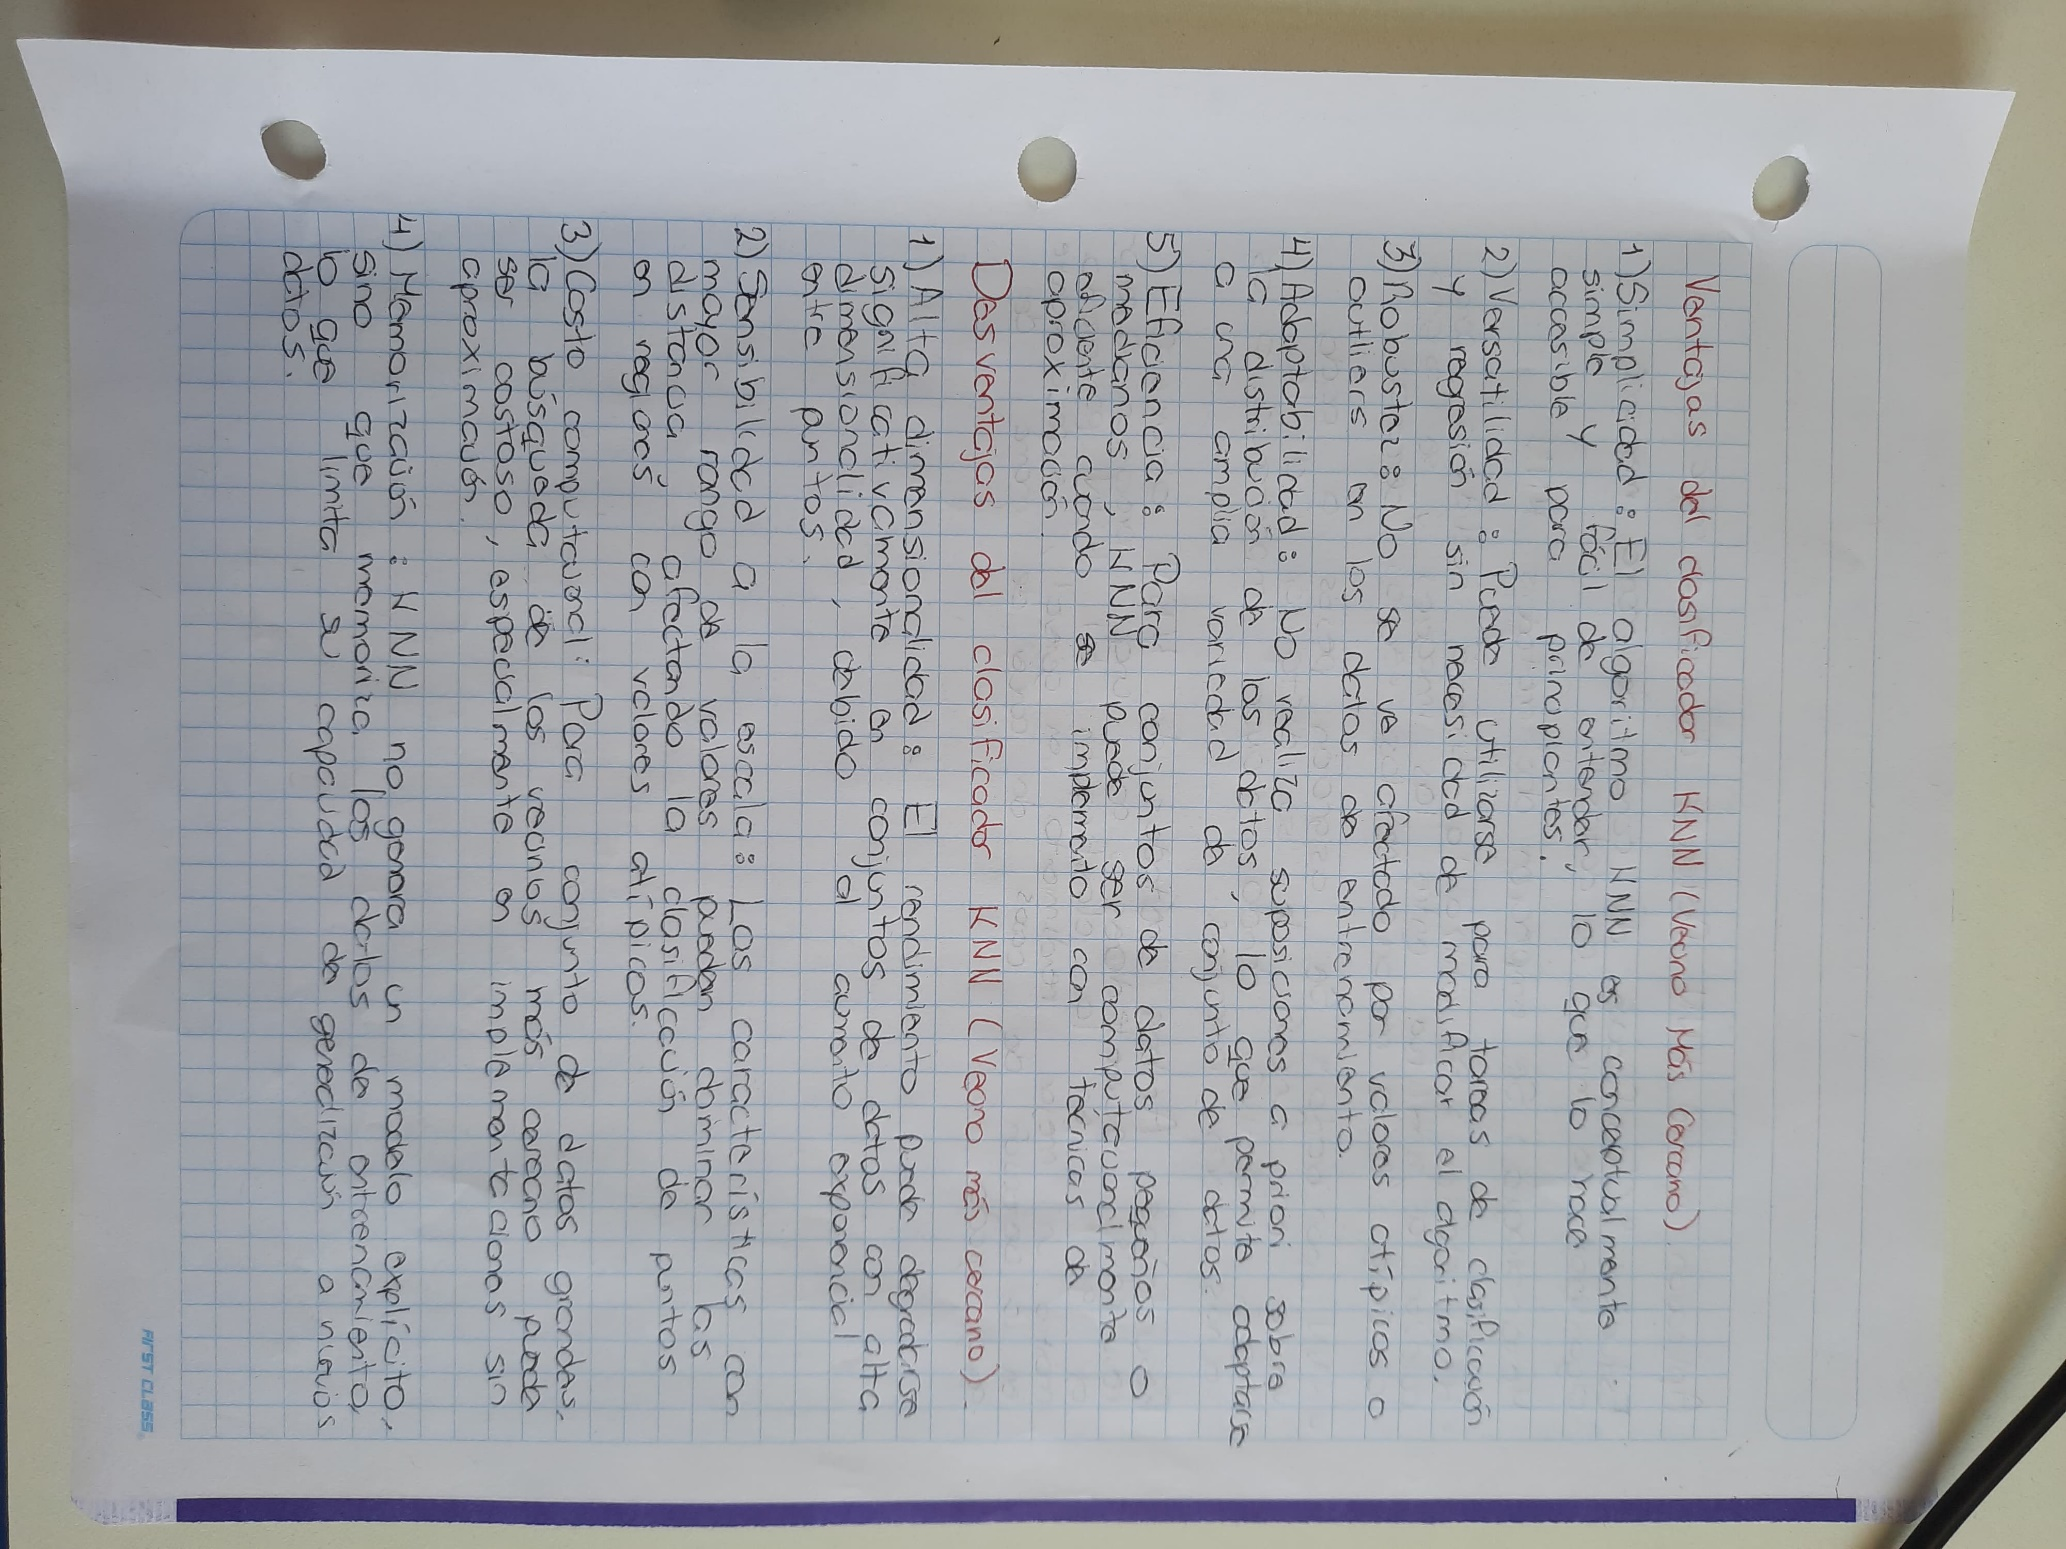 Ventajas del clasificador KNN (Vecino Más Cercano).
1) Simplicidad : El algoritmo KNN es conceptualmente
simple y fácil de entender, lo que lo hace
accesible para principiantes.
2) Versatilidad : Puede utilizarse para tareas de clasificación
y regresión sin necesidad de modificar el algoritmo.
3) Robustez : No se ve afectado por valores atípicos o
outliers en los datos de entrenamiento.
4) Adaptabilidad : No realiza suposiciones a priori sobre
la distribución de los datos, lo que permite adaptarse
a una amplia variedad de conjunto de datos.
5) Eficiencia : Para conjuntos de datos pequeños o
medianos, KNN puede ser computacionalmente
eficiente cuando se implemento con técnicas de
aproximación.
Desventajas del clasificador KNN (Vecino más cercano).
1) Alta dimensionalidad : El rendimiento puede degradarse
significativamente en conjuntos de datos con alta
dimensionalidad, debido al aumento exponencial
entre puntos.
2) Sensibilidad a la escala : Las características con
mayor rango de valores pueden dominar las
distancia afectando la clasificación de puntos
en regiones con valores atípicos.
3) Costo computacional : Para conjunto de datos grandes,
la búsqueda de los vecinos más cercano puede
ser costoso, especialmente en implementaciones sin
aproximación.
4) Memorización : KNN no genera un modelo explícito,
sino que memoriza los datos de entrenamiento,
lo que limita su capacidad de generalización a nuevos
datos.
FIRST CLASS